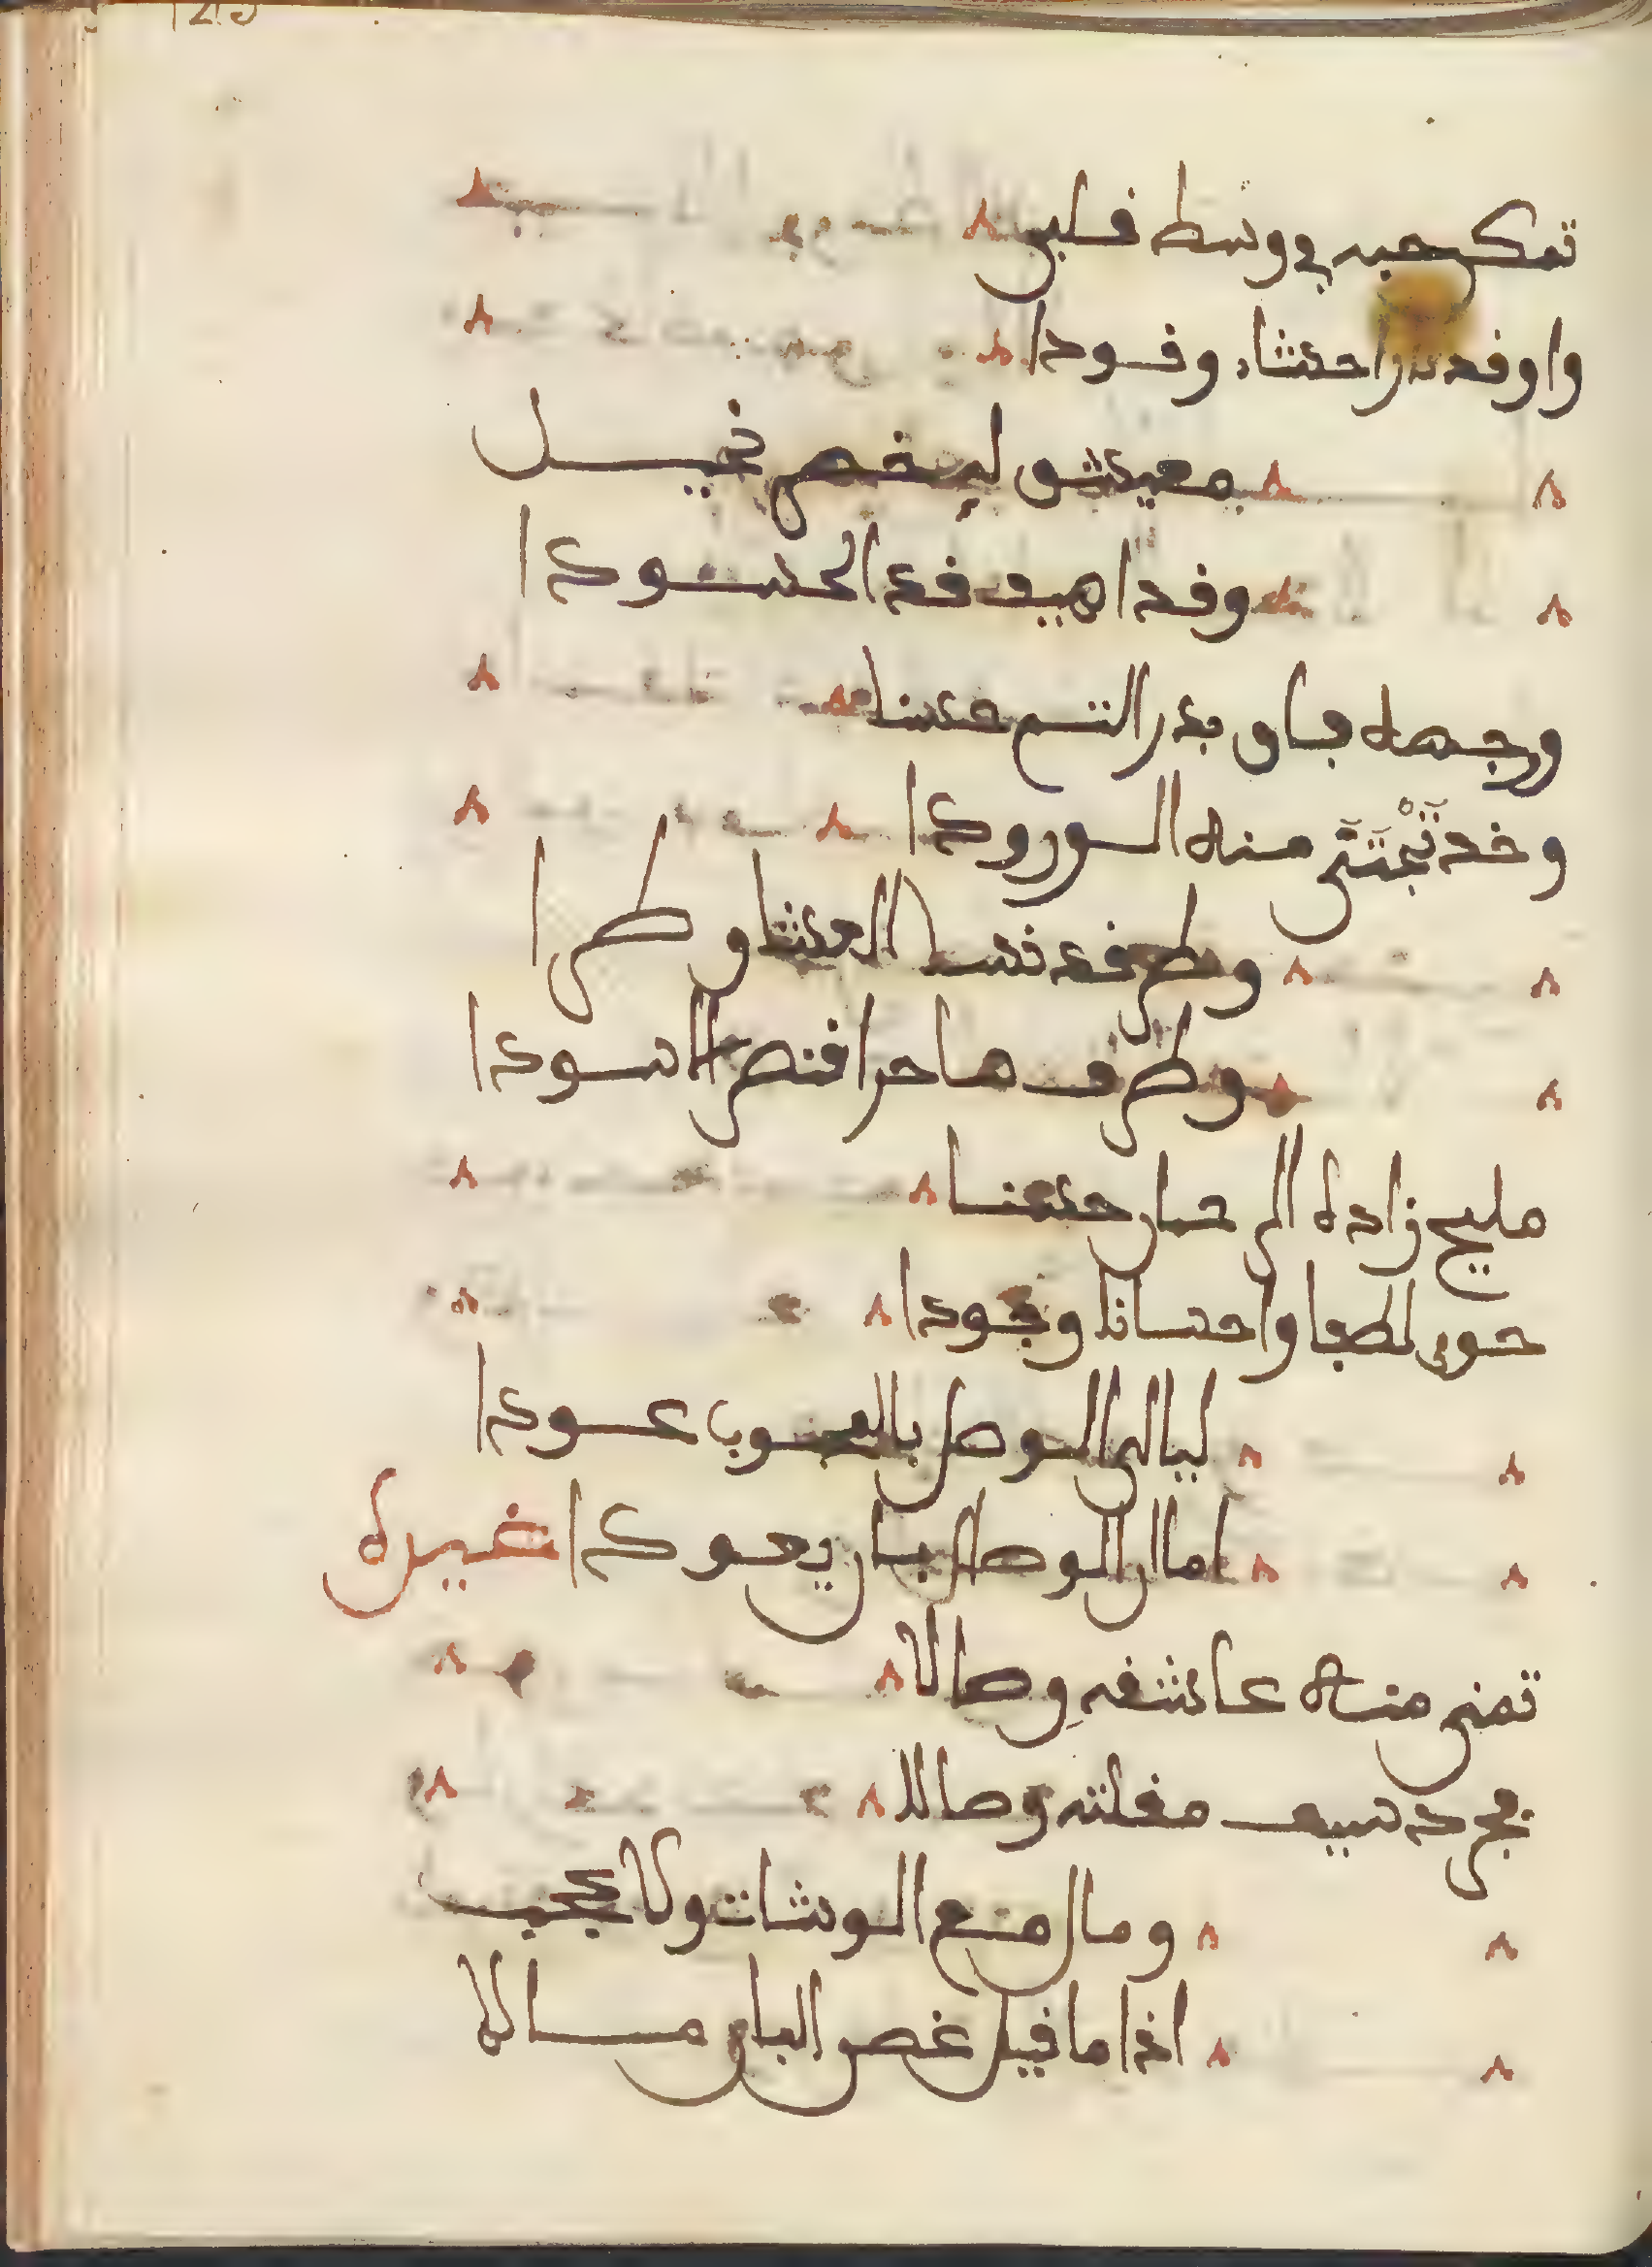 تمكن حبه في وسط قلبي
واوقد في الحشاء وقودا
معيشق له خصر نحيل
وقد اهيف قد الحسودا
وجهه فاق بدر التم حسنا
وخد تُجْتَنَى منه الورودا
وطرفه نسا العشاق طرا
وطرف ساحر اقنص الاسودا
مليح زاده الرحمان حسنا
حوى لطفا واحسانا وجودا
ليالي الوصل بالمحبوب عودا
اما ان الوصال بان يعودا غيره
تمنى منه عاشقه وصالا
فجرد سيف مقلته وصالا
ومال مع الوشات ولا عجيب
اذا ما قيل غصن البان مالا